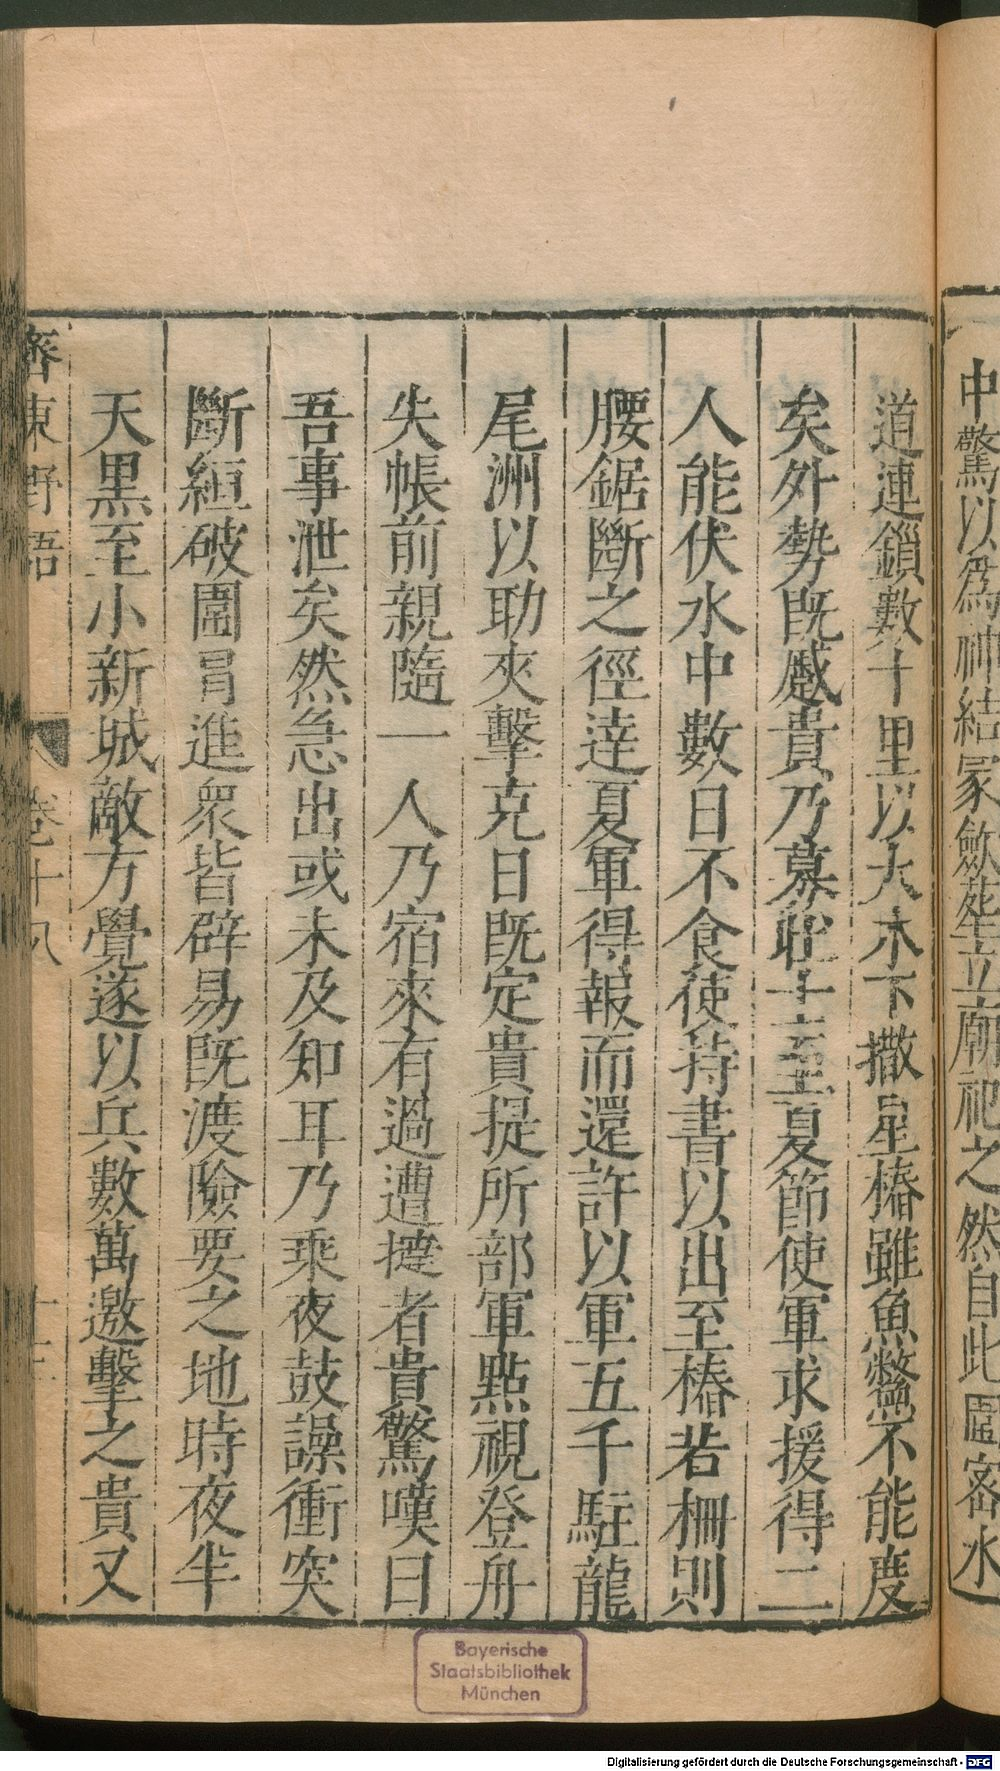 中驚以爲神結冢斂塟立廟祀之然自此圍宻水
道連鎖數十里以大木下撒星樁雖魚鼈不能度
矣外勢既蹙貴乃募壯士至夏節使軍求援得二
人能伏水中數日不食使持書以出至樁若柵則
腰鋸斷之徑逹夏軍得報而還許以軍五千駐龍
尾洲以助夾擊克日既定貴提所部軍點視登舟
失帳前親隨一人乃宿來有過遭撻者貴驚嘆曰
吾事泄矣然急出或未及知耳乃乘夜鼓譟衝突
斷絙破圍冐進衆皆辟易既渡險要之地時夜半
天黒至小新城敵方覺遂以兵數萬邀擊之貴又
齊東野語 卷十八
Bayerische
Staatsbibliothek
München
Digitalisierung gefördert durch die Deutsche Forschungsgemeinschaft - DFG